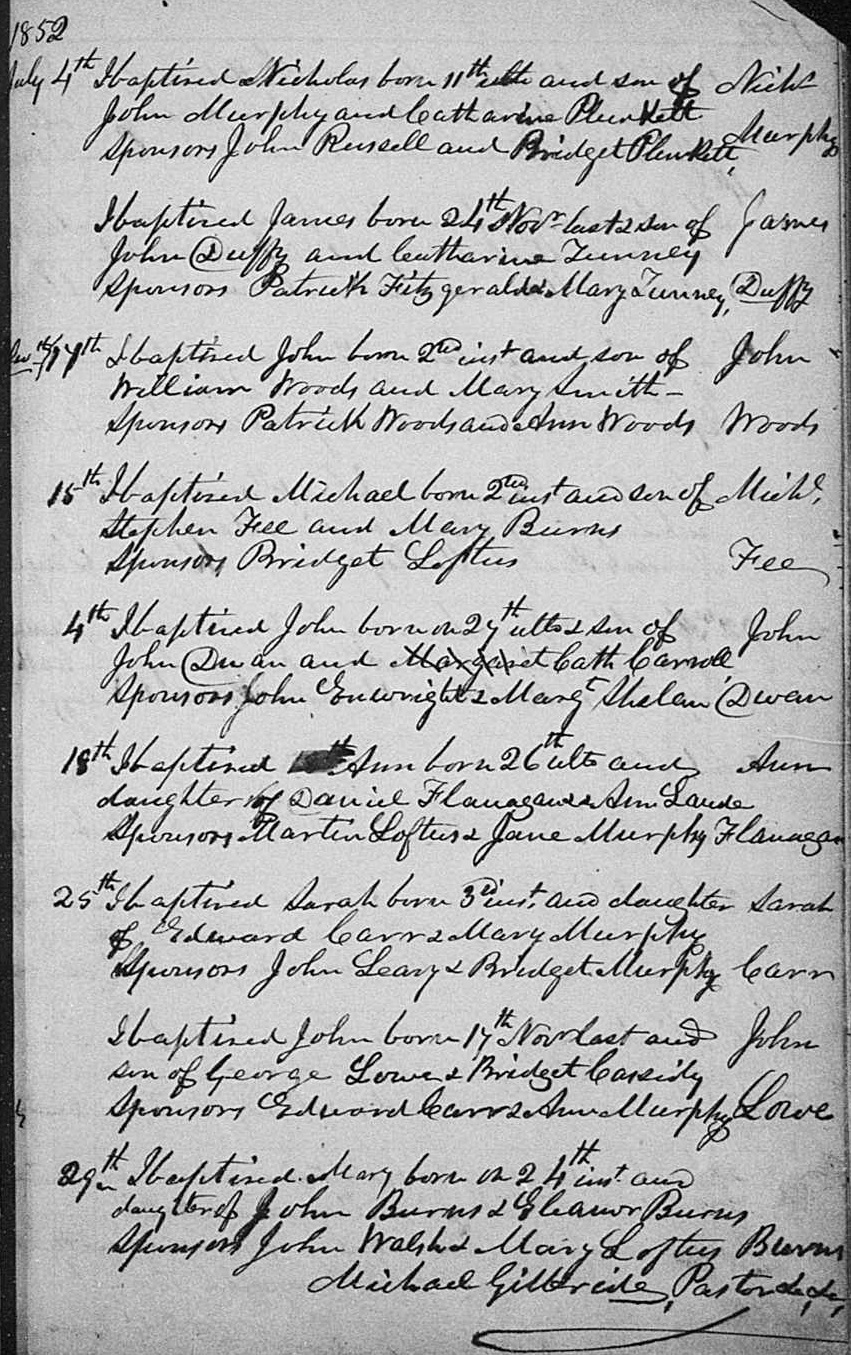 1852
July 4th I baptised Nicholas born 11th ulto and son of Nichs
John Murphy and Catharine Plunkett
Sponsors John Russell and Bridget Plunkett, Murphy
I baptised James born 24th Novr last & son of James
John Duffy and Catharine Tunney
Sponsors Patrick Fitzgerald & Mary Tunney, Duffy
17th I baptised John born 2nd inst and son of John
William Woods and Mary Smith -
Sponsors Patrick Woods and Ann Woods Woods
15th I baptised Michael born 2nd inst and son of Michl,
Stephen Fee and Mary Burns
Sponsors Bridget Loftus Fee
4th I baptised John born on 27th ulto & son of John
John Dwan and Margaret Cath Carroll
Sponsors John Enwright & Margt Dwan
18th I baptised Ann born 26th ulto and Ann
daughter of Daniel Flanagan & Ann
Sponsors Martin Loftus & Jane Murphy Flanagan
25th I baptised Sarah born 3rd inst, and daughter Sarah
of Edward Carr & Mary Murphy
Sponsors John Leary & Bridget Murphy Carr
I baptised John born 17th Novr last and John
son of George Lowe & Bridget Cassidy
Sponsors Edward Carr & Ann Murphy Lowe
29th I baptised Mary born on 24th inst and
daughter of John Burns & Eleanor Burns
Sponsors John Walsh & Mary Loftus Burns
Michael Gilbride, Pastor &c, &c,